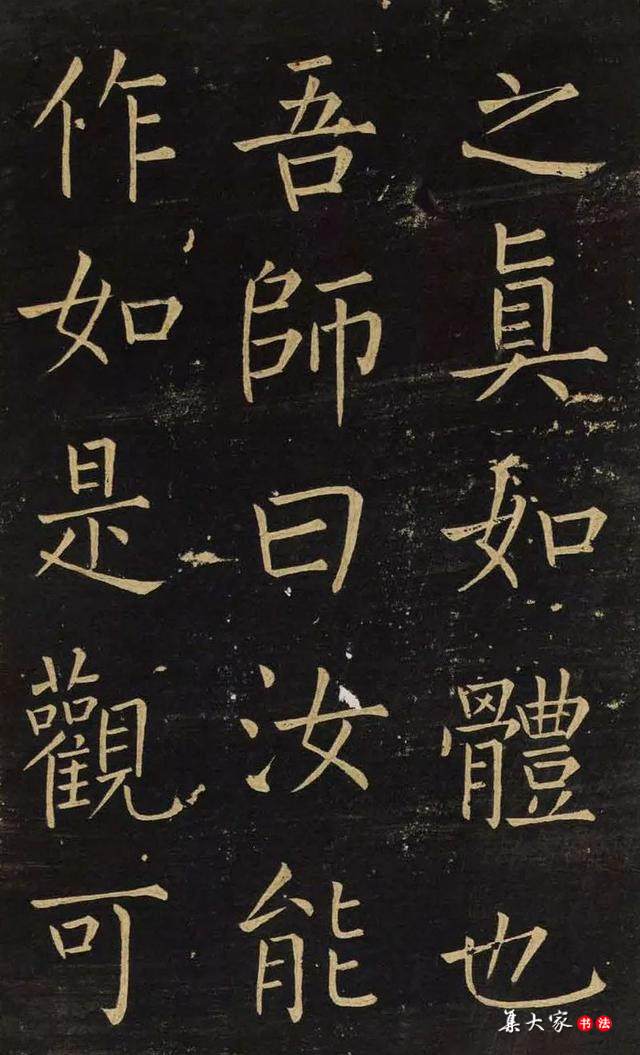 之真如體也
吾師曰汝能
作如是觀可
集大家书法